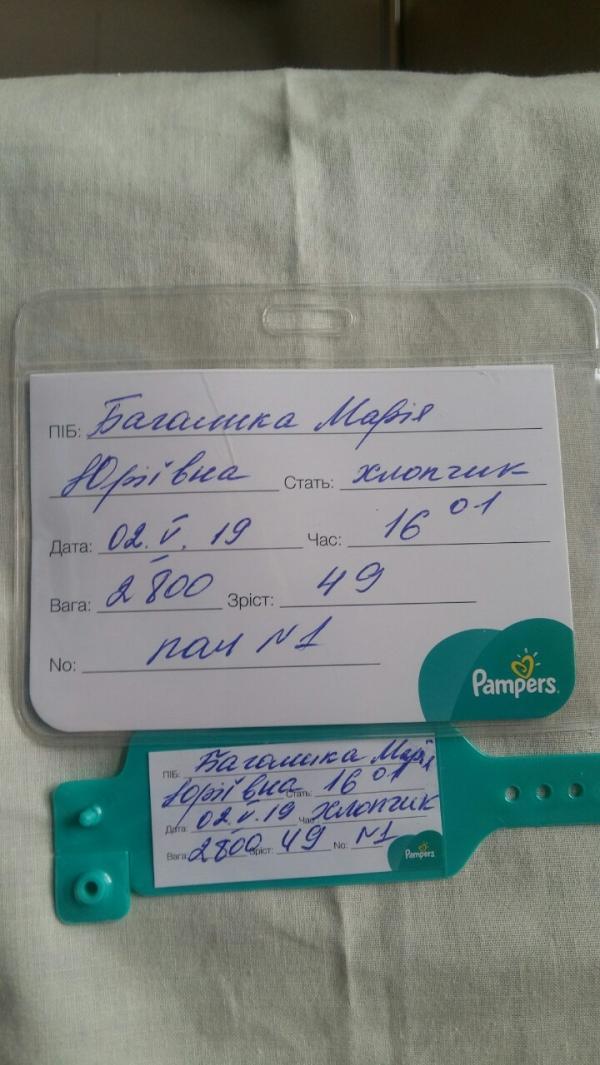 ПІБ: Багалика Марія
Юріївна Стать: хлопчик
Дата: 02. V. 19 Час: 16 01
Вага: 2800 Зріст: 49
No: пал N1
Pampers
ПІБ: Багалика Марія
Юріївна Стать: 16 01
Дата: 02. V. 19 Час: Хлопчик
Вага: 2800 Зріст: 49 No: N1
Pampers